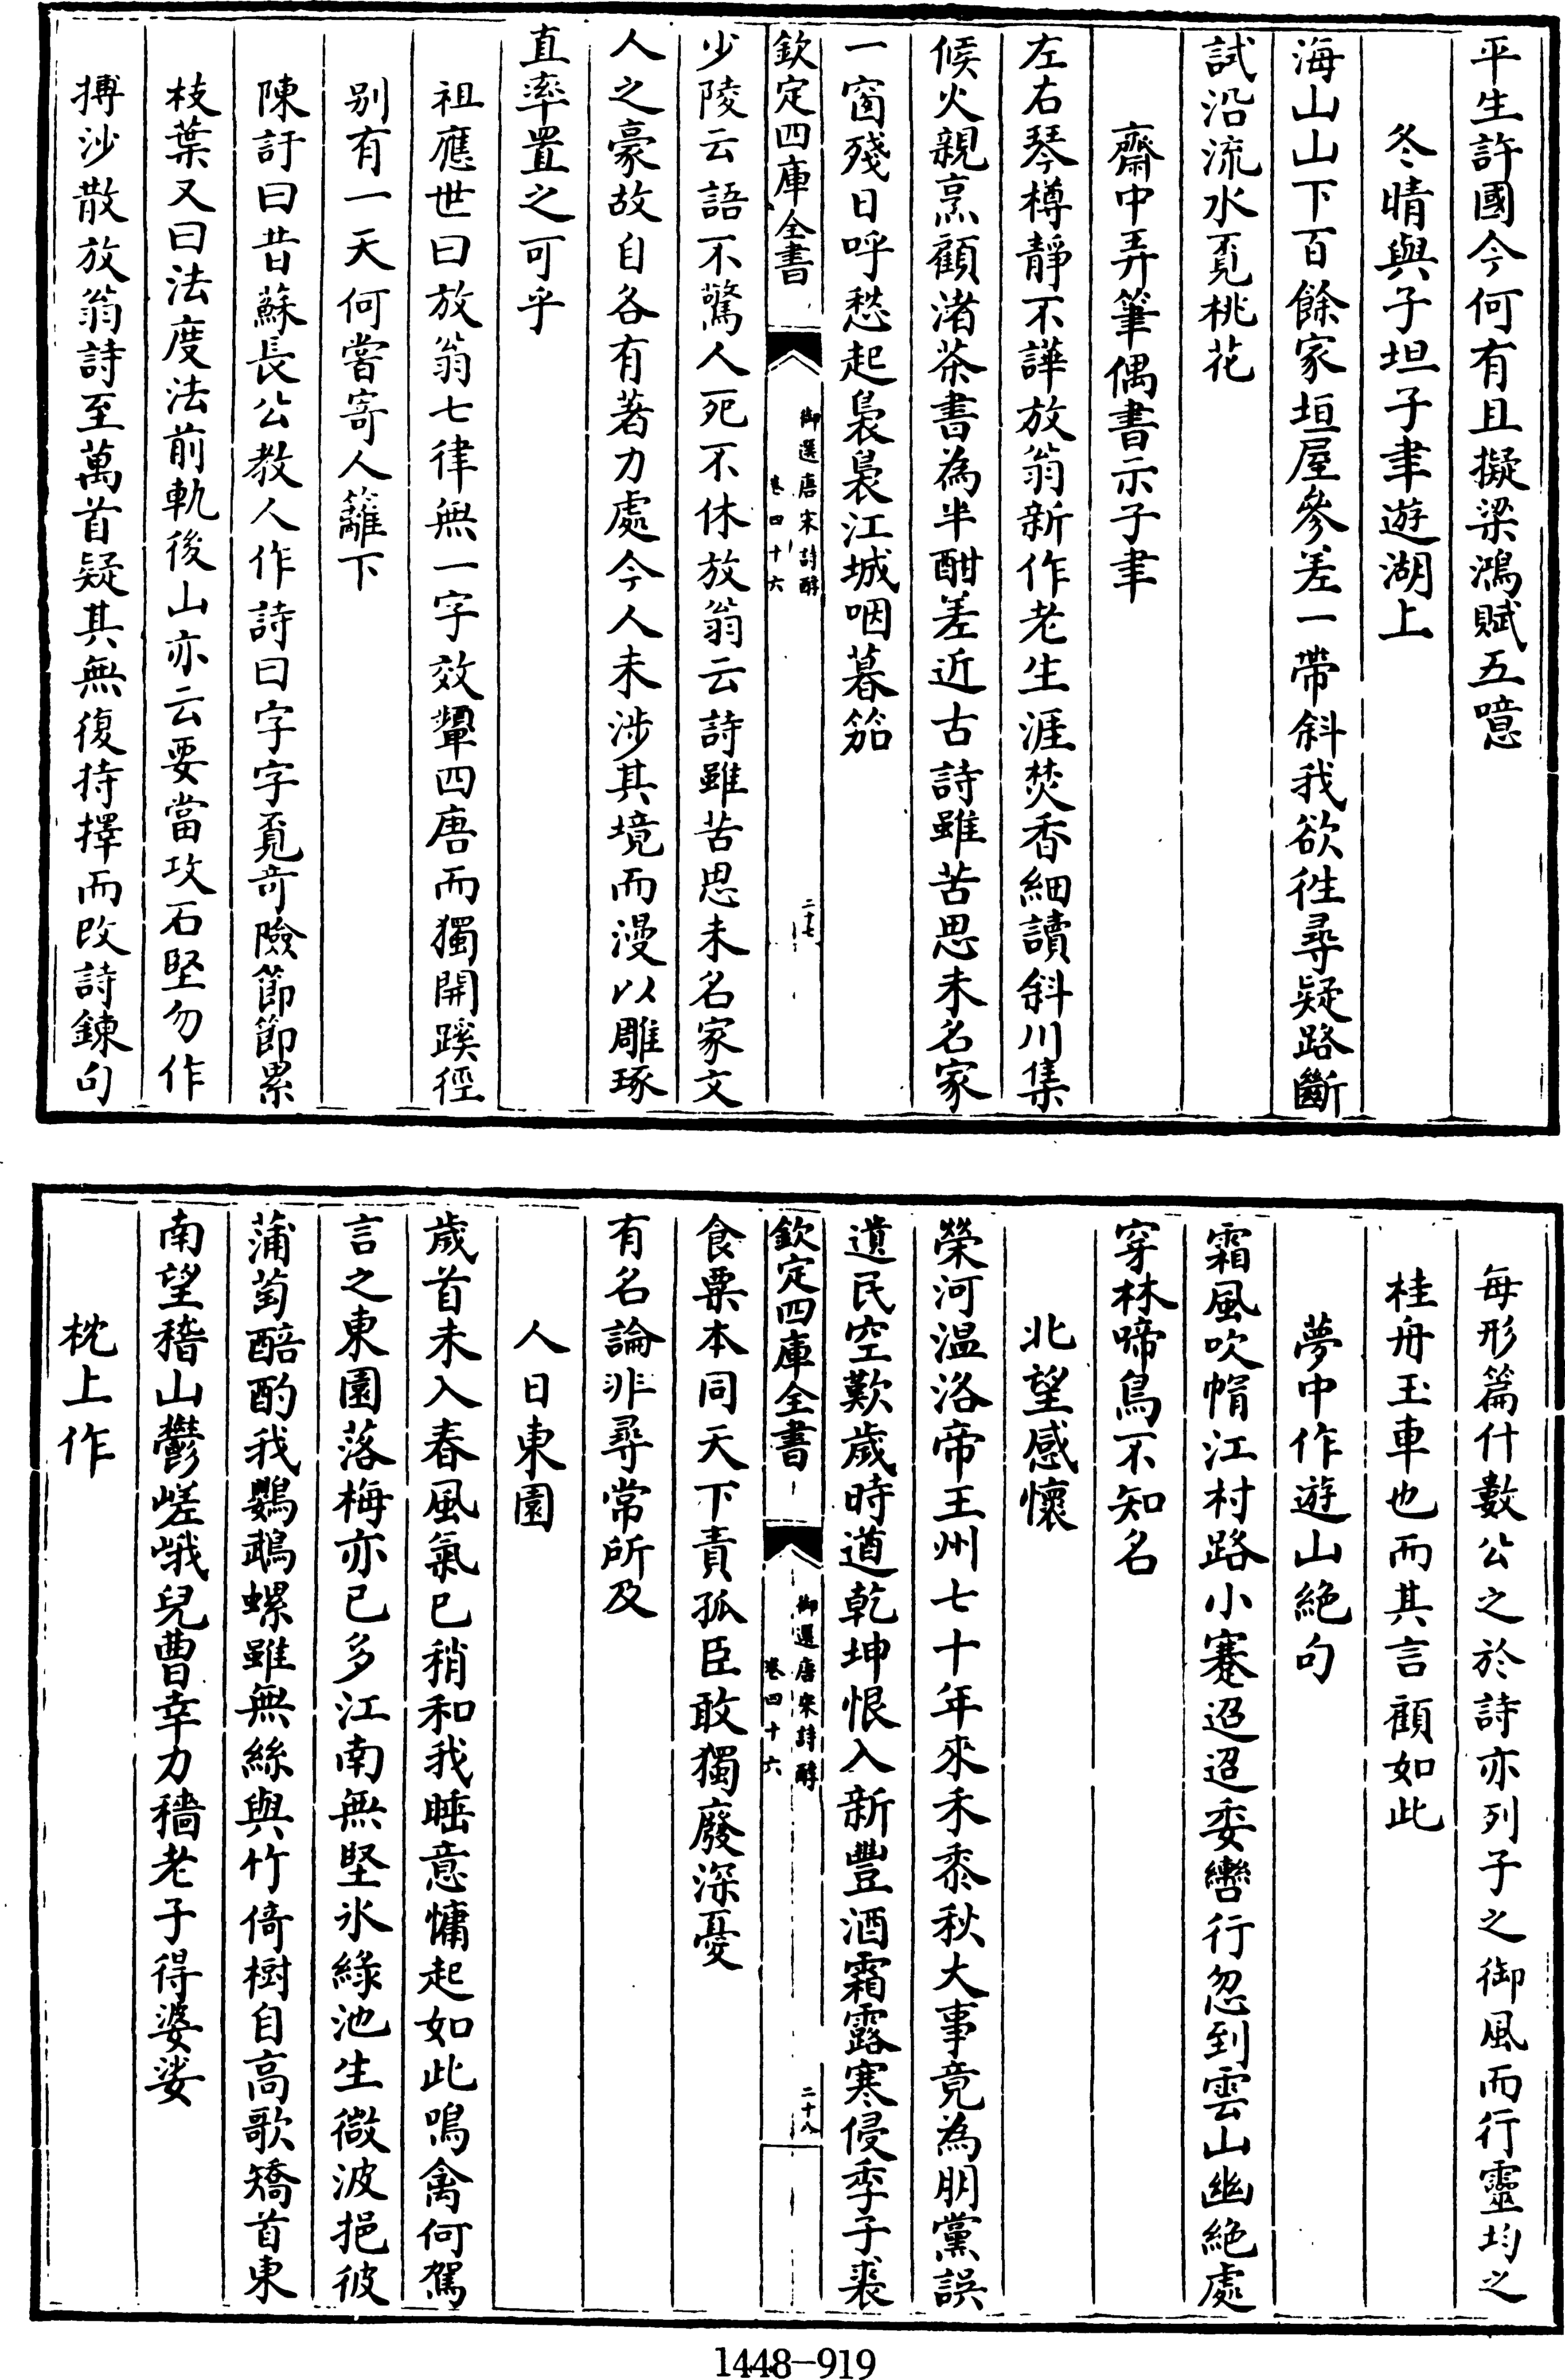 平生許國今何有且擬梁鴻賦五噫
冬晴與子坦子聿遊湖上
海山山下百餘家垣屋參差一帶斜我欲往尋疑路斷
試沿流水覓桃花
齋中弄筆偶書示子聿
左右琴樽靜不譁放翁新作老生涯焚香細讀斜川集
候火親烹顧渚茶書為半酣差近古詩雖苦思未名家
一窗殘日呼愁起裊裊江城咽暮笳
欽定四庫全書
御選唐宋詩醇
卷四十六
二十七
少陵云語不驚人死不休放翁云詩雖苦思未名家文
人之豪故自各有著力處今人未涉其境而漫以雕琢
直率置之可乎
祖應世曰放翁七律無一字效顰四唐而獨開蹊徑
别有一天何嘗寄人籬下
陳訏曰昔蘇長公教人作詩曰字字覓奇險節節累
枝葉又曰法度法前軌後山亦云要當攻石堅勿作
摶沙散放翁詩至萬首疑其無復持擇而改詩鍊句
每形篇什數公之於詩亦列子之御風而行靈均之
桂舟玉車也而其言顧如此
夢中作遊山絶句
霜風吹帽江村路小蹇迢迢委轡行忽到雲山幽絶處
穿林啼鳥不知名
北望感懷
榮河温洛帝王州七十年來禾黍秋大事竟為朋黨誤
遺民空歎歲時遒乾坤恨入新豐酒霜露寒侵季子裘
欽定四庫全書
御選唐宋詩醇
卷四十六
二十八
食粟本同天下責孤臣敢獨廢深憂
有名論非尋常所及
人日東園
歲首未入春風氣已稍和我睡意慵起如此鳴禽何駕
言之東園落梅亦已多江南無堅氷綠池生微波挹彼
蒲萄醅酌我鸚鵡螺雖無絲與竹倚樹自高歌矯首東
南望稽山鬱嵯峨兒曹幸力穡老子得婆娑
枕上作
1448-919